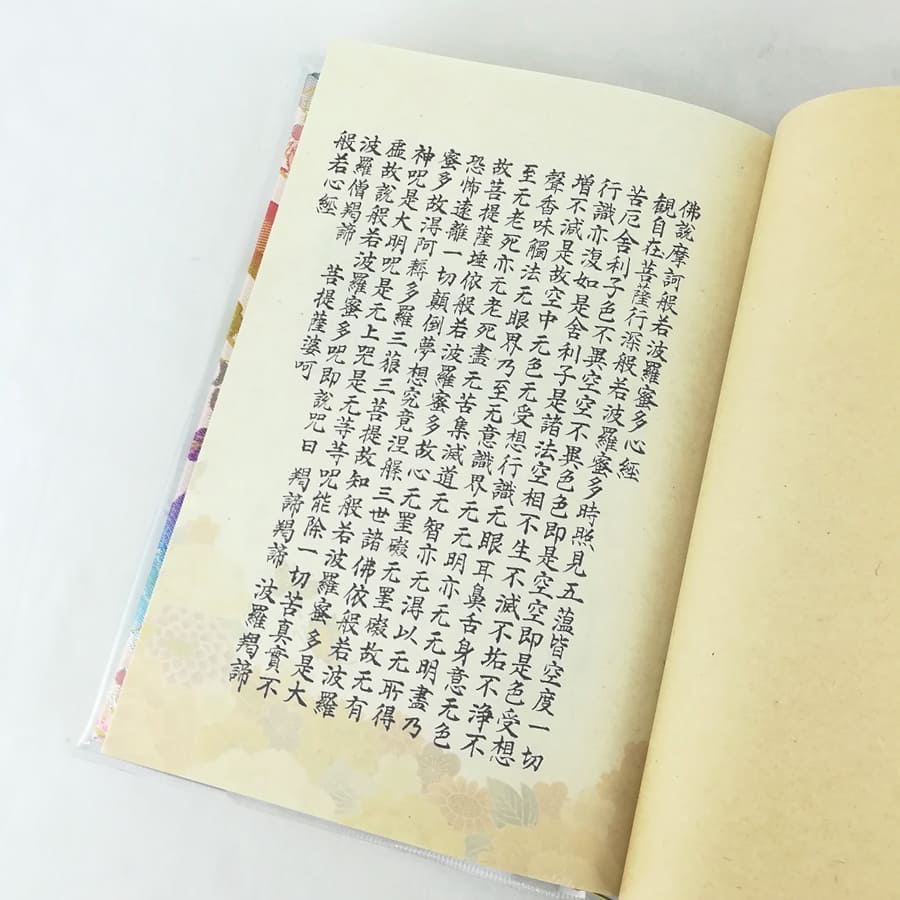 佛說摩訶般若波羅蜜多心經
観自在菩薩行深般若波羅蜜多時照見五蘊皆空度一切
苦厄舍利子色不異空空不異色色即是空空即是色受想
行識亦復如是舍利子是諸法空相不生不滅不垢不浄不
增不減是故空中无色无受想行識无眼耳鼻舌身意无色
聲香味觸法无眼界乃至无意識界无无明亦无无明盡乃
至无老死亦无老死盡无苦集滅道无智亦无得以无所得
故菩提薩埵依般若波羅蜜多故心无罣礙无罣礙故无有
恐怖遠離一切顛倒夢想究竟涅槃三世諸佛依般若波羅
蜜多故得阿耨多羅三藐三菩提故知般若波羅蜜多是大
神呪是大明呪是无上呪是无等等呪能除一切苦真實不
虛故說般若波羅蜜多呪即說呪曰 羯諦羯諦 波羅羯諦
波羅僧羯諦 菩提薩婆呵
般若心經